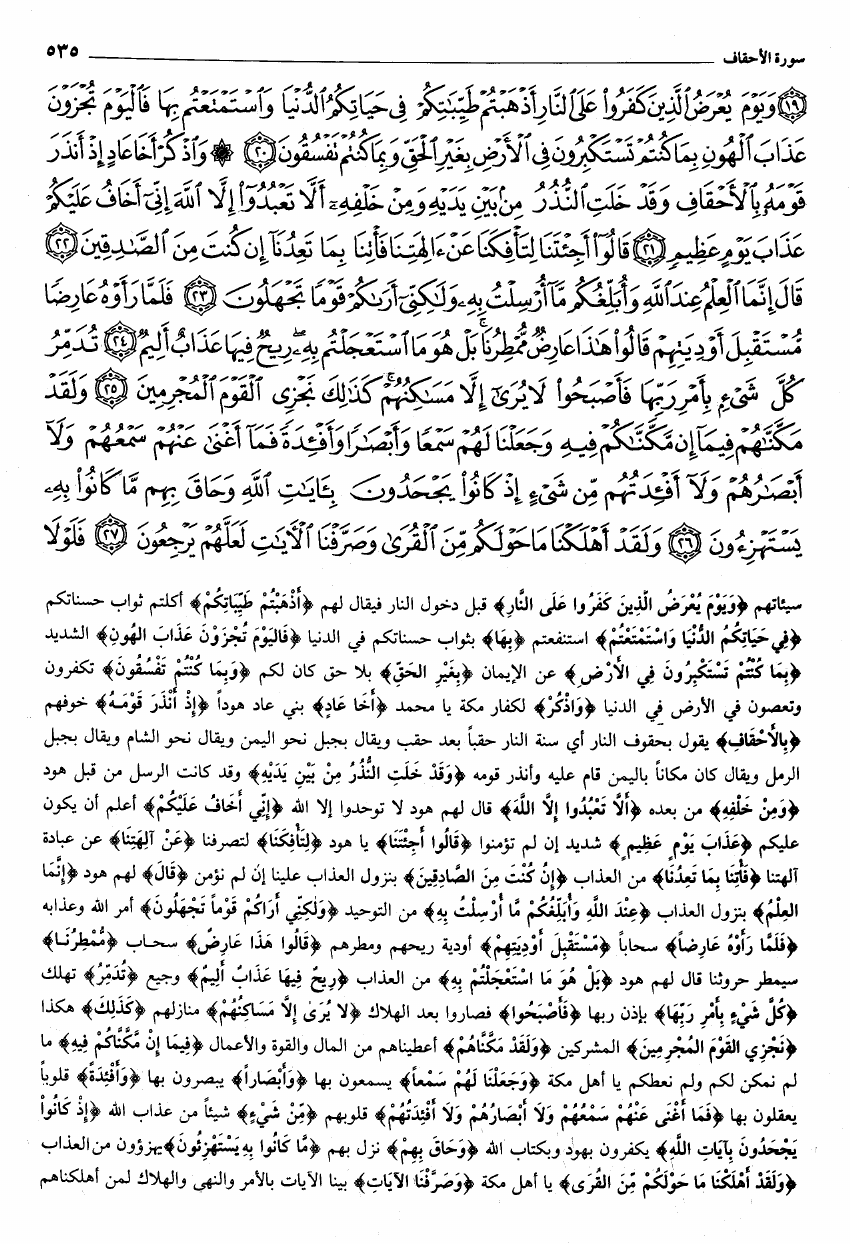 سورة الأحقاف ٥٣٥
﴿١٩﴾ وَيَوْمَ يُعْرَضُ ٱلَّذِينَ كَفَرُوا۟ عَلَى ٱلنَّارِ أَذْهَبْتُمْ طَيِّبَـٰتِكُمْ فِى حَيَاتِكُمُ ٱلدُّنْيَا وَٱسْتَمْتَعْتُم بِهَا فَٱلْيَوْمَ تُجْزَوْنَ
عَذَابَ ٱلْهُونِ بِمَا كُنتُمْ تَسْتَكْبِرُونَ فِى ٱلْأَرْضِ بِغَيْرِ ٱلْحَقِّ وَبِمَا كُنتُمْ تَفْسُقُونَ ﴿٢٠﴾ ۞ وَٱذْكُرْ أَخَا عَادٍ إِذْ أَنذَرَ
قَوْمَهُۥ بِٱلْأَحْقَافِ وَقَدْ خَلَتِ ٱلنُّذُرُ مِنۢ بَيْنِ يَدَيْهِ وَمِنْ خَلْفِهِۦٓ أَلَّا تَعْبُدُوٓا۟ إِلَّا ٱللَّهَ إِنِّىٓ أَخَافُ عَلَيْكُمْ
عَذَابَ يَوْمٍ عَظِيمٍ ﴿٢١﴾ قَالُوٓا۟ أَجِئْتَنَا لِتَأْفِكَنَا عَنْ ءَالِهَتِنَا فَأْتِنَا بِمَا تَعِدُنَآ إِن كُنتَ مِنَ ٱلصَّـٰدِقِينَ ﴿٢٢﴾
قَالَ إِنَّمَا ٱلْعِلْمُ عِندَ ٱللَّهِ وَأُبَلِّغُكُم مَّآ أُرْسِلْتُ بِهِۦ وَلَـٰكِنِّىٓ أَرَىٰكُمْ قَوْمًا تَجْهَلُونَ ﴿٢٣﴾ فَلَمَّا رَأَوْهُ عَارِضًا
مُّسْتَقْبِلَ أَوْدِيَتِهِمْ قَالُوا۟ هَـٰذَا عَارِضٌ مُّمْطِرُنَا ۚ بَلْ هُوَ مَا ٱسْتَعْجَلْتُم بِهِۦ ۖ رِيحٌ فِيهَا عَذَابٌ أَلِيمٌ ﴿٢٤﴾ تُدَمِّرُ
كُلَّ شَىْءٍۭ بِأَمْرِ رَبِّهَا فَأَصْبَحُوا۟ لَا يُرَىٰٓ إِلَّا مَسَـٰكِنُهُمْ ۚ كَذَٰلِكَ نَجْزِى ٱلْقَوْمَ ٱلْمُجْرِمِينَ ﴿٢٥﴾ وَلَقَدْ
مَكَّنَّـٰهُمْ فِيمَآ إِن مَّكَّنَّـٰكُمْ فِيهِ وَجَعَلْنَا لَهُمْ سَمْعًا وَأَبْصَـٰرًا وَأَفْـِٔدَةً فَمَآ أَغْنَىٰ عَنْهُمْ سَمْعُهُمْ وَلَآ
أَبْصَـٰرُهُمْ وَلَآ أَفْـِٔدَتُهُم مِّن شَىْءٍ إِذْ كَانُوا۟ يَجْحَدُونَ بِـَٔايَـٰتِ ٱللَّهِ وَحَاقَ بِهِم مَّا كَانُوا۟ بِهِۦ
يَسْتَهْزِءُونَ ﴿٢٦﴾ وَلَقَدْ أَهْلَكْنَا مَا حَوْلَكُم مِّنَ ٱلْقُرَىٰ وَصَرَّفْنَا ٱلْـَٔايَـٰتِ لَعَلَّهُمْ يَرْجِعُونَ ﴿٢٧﴾ فَلَوْلَا
سيئاتهم ﴿وَيَوْمَ يُعْرَضُ الَّذِينَ كَفَرُوا عَلَى النَّارِ﴾ قبل دخول النار فيقال لهم ﴿أَذْهَبْتُمْ طَيِّبَاتِكُمْ﴾ أكلتم ثواب حسناتكم
﴿فِي حَيَاتِكُمُ الدُّنْيَا وَاسْتَمْتَعْتُمْ﴾ استنفعتم ﴿بِهَا﴾ بثواب حسناتكم في الدنيا ﴿فَالْيَوْمَ تُجْزَوْنَ عَذَابَ الهُونِ﴾ الشديد
﴿بِمَا كُنْتُمْ تَسْتَكْبِرُونَ فِي الأَرْضِ﴾ عن الإيمان ﴿بِغَيْرِ الحَقِّ﴾ بلا حق كان لكم ﴿وَبِمَا كُنْتُمْ تَفْسُقُونَ﴾ تكفرون
وتعصون في الأرض في الدنيا ﴿وَاذْكُرْ﴾ لكفار مكة يا محمد ﴿أَخَا عَادٍ﴾ بني عاد هوداً ﴿إِذْ أَنْذَرَ قَوْمَهُ﴾ خوفهم
﴿بِالأَحْقَافِ﴾ يقول بحقوف النار أي سنة النار حقباً بعد حقب ويقال بجبل نحو اليمن ويقال نحو الشام ويقال بجبل
الرمل ويقال كان مكاناً باليمن قام عليه وأنذر قومه ﴿وَقَدْ خَلَتِ النُّذُرُ مِنْ بَيْنِ يَدَيْهِ﴾ وقد كانت الرسل من قبل هود
﴿وَمِنْ خَلْفِهِ﴾ من بعده ﴿أَلَّا تَعْبُدُوا إِلَّا اللَّهَ﴾ قال لهم هود لا توحدوا إلا الله ﴿إِنِّي أَخَافُ عَلَيْكُمْ﴾ أعلم أن يكون
عليكم ﴿عَذَابَ يَوْمٍ عَظِيمٍ﴾ شديد إن لم تؤمنوا ﴿قَالُوا أَجِئْتَنَا﴾ يا هود ﴿لِتَأْفِكَنَا﴾ لتصرفنا ﴿عَنْ آلِهَتِنَا﴾ عن عبادة
آلهتنا ﴿فَأْتِنَا بِمَا تَعِدُنَا﴾ من العذاب ﴿إِنْ كُنْتَ مِنَ الصَّادِقِينَ﴾ بنزول العذاب علينا إن لم نؤمن ﴿قَالَ﴾ لهم هود ﴿إِنَّمَا
العِلْمُ﴾ بنزول العذاب ﴿عِنْدَ اللَّهِ وَأُبَلِّغُكُمْ مَّا أُرْسِلْتُ بِهِ﴾ من التوحيد ﴿وَلَكِنِّي أَرَاكُمْ قَوْماً تَجْهَلُونَ﴾ أمر الله وعذابه
﴿فَلَمَّا رَأَوْهُ عَارِضاً﴾ سحاباً ﴿مُّسْتَقْبِلَ أَوْدِيَتِهِمْ﴾ أودية ريحهم ومطرهم ﴿قَالُوا هَذَا عَارِضٌ﴾ سحاب ﴿مُّمْطِرُنَا﴾
سيمطر حروثنا قال لهم هود ﴿بَلْ هُوَ مَا اسْتَعْجَلْتُمْ بِهِ﴾ من العذاب ﴿رِيحٌ فِيهَا عَذَابٌ أَلِيمٌ﴾ وجيع ﴿تُدَمِّرُ﴾ تهلك
﴿كُلَّ شَيْءٍ بِأَمْرِ رَبِّهَا﴾ بإذن ربها ﴿فَأَصْبَحُوا﴾ فصاروا بعد الهلاك ﴿لا يُرَى إِلَّا مَسَاكِنُهُمْ﴾ منازلهم ﴿كَذَلِكَ﴾ هكذا
﴿نَجْزِي القَوْمَ المُجْرِمِينَ﴾ المشركين ﴿وَلَقَدْ مَكَّنَّاهُمْ﴾ أعطيناهم من المال والقوة والأعمال ﴿فِيمَا إِنْ مَّكَّنَّاكُمْ فِيهِ﴾ ما
لم نمكن لكم ولم نعطكم يا أهل مكة ﴿وَجَعَلْنَا لَهُمْ سَمْعاً﴾ يسمعون بها ﴿وَأَبْصَاراً﴾ يبصرون بها ﴿وَأَفْئِدَةً﴾ قلوباً
يعقلون بها ﴿فَمَا أَغْنَى عَنْهُمْ سَمْعُهُمْ وَلَا أَبْصَارُهُمْ وَلَا أَفْئِدَتُهُمْ﴾ قلوبهم ﴿مِّنْ شَيْءٍ﴾ شيئاً من عذاب الله ﴿إِذْ كَانُواْ
يَجْحَدُونَ بِآيَاتِ اللَّهِ﴾ يكفرون بهود وبكتاب الله ﴿وَحَاقَ بِهِمْ﴾ نزل بهم ﴿مَّا كَانُوا بِهِ يَسْتَهْزِئُونَ﴾ يهزؤون من العذاب
﴿وَلَقَدْ أَهْلَكْنَا مَا حَوْلَكُمْ مِّنَ القُرَى﴾ يا أهل مكة ﴿وَصَرَّفْنَا الآيَاتِ﴾ بينا الآيات بالأمر والنهي والهلاك لمن أهلكناهم